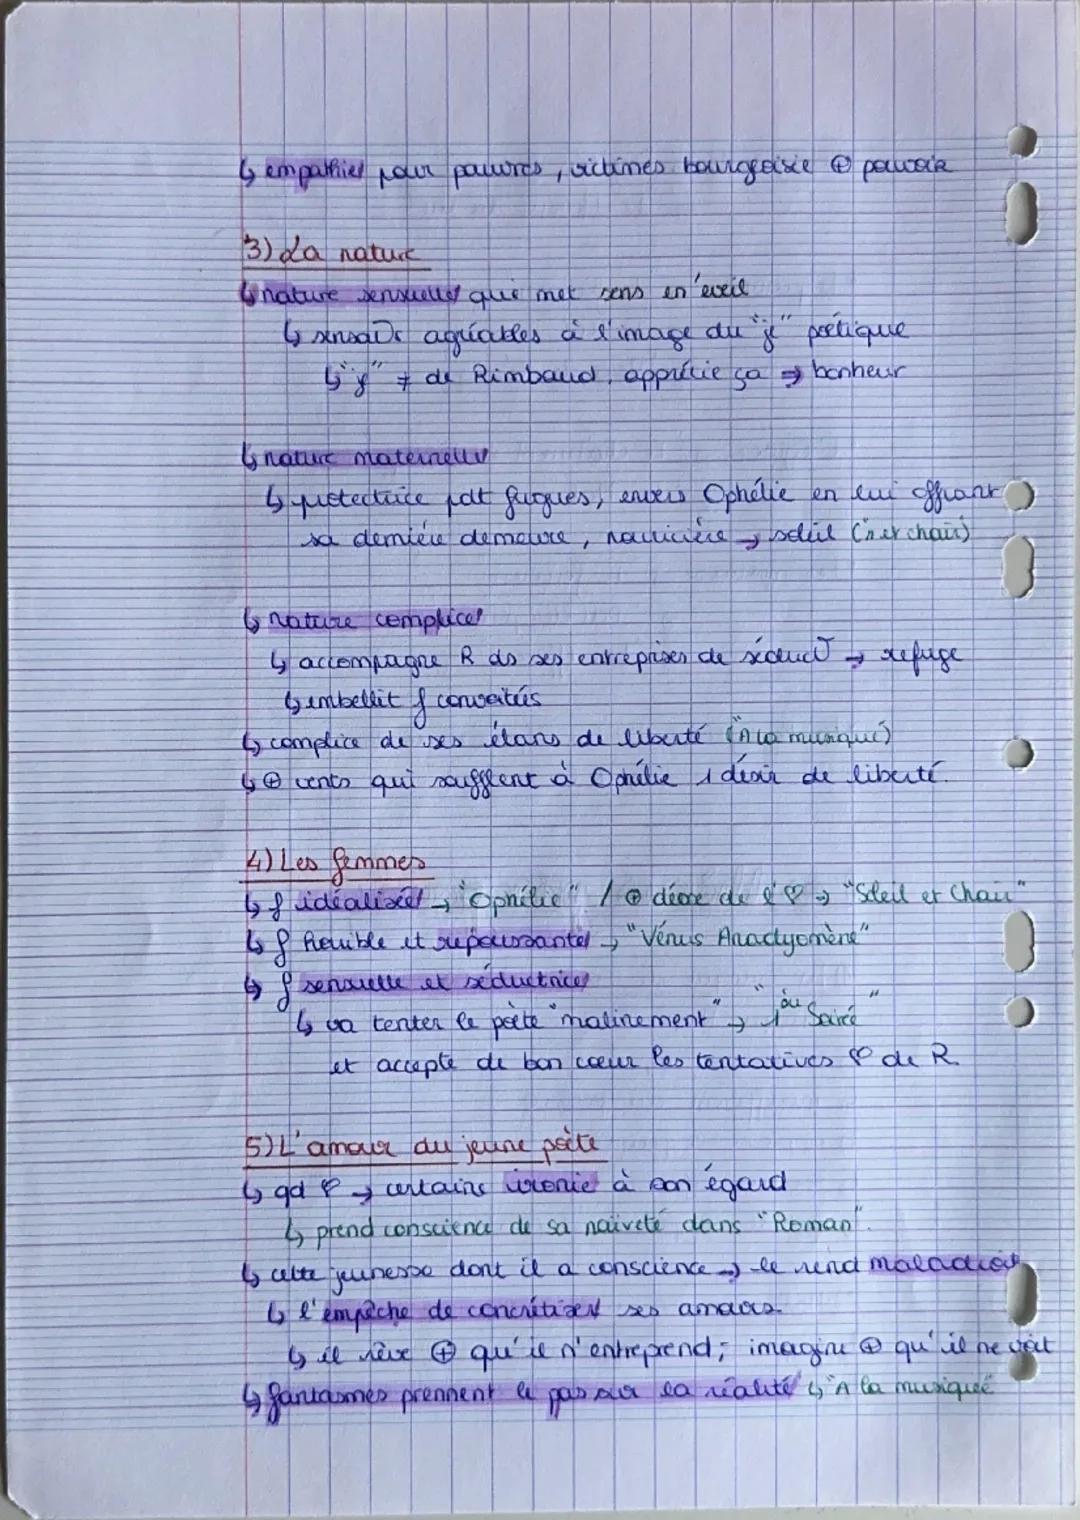 ↳ empathie pour pauvres, victimes bourgeoisie ⊕ pouvoir
3) La nature
↳ nature sensuelle qui met sens en éveil
↳ sensat° agréables à l'image du "je" poétique
↳ "je" ≠ de Rimbaud, apprécie ça → bonheur
↳ nature maternelle
↳ protectrice pdt fugues, envers Ophélie en lui offrant
sa dernière demeure, nourricière → soleil ("n et chair)
↳ nature complice
↳ accompagne R ds ses entreprises de séduct° → refuge
↳ embellit f convoitées
↳ complice de ses élans de liberté (A la musique)
↳ ⊕ vents qui soufflent à Ophélie 1 désir de liberté.
4) Les femmes
↳ f idéalisée → "Ophélie" / ⊕ déesse de l'♡ → "Soleil et Chair"
↳ f horrible et repoussante → "Vénus Anadyomène"
↳ f sensuelle et séductrice
↳ va tenter le poète "malinement" → "1ère Soirée"
et accepte de bon cœur les tentatives ♡ de R.
5) L'amour du jeune poète
↳ qd ♡ → certaine ironie à son égard
↳ prend conscience de sa naïveté dans "Roman".
↳ cette jeunesse dont il a conscience → le rend maladroit
↳ l'empêche de concrétiser ses amours.
↳ il rêve ⊕ qu'il n'entreprend; imagine ⊕ qu'il ne voit
↳ fantasmes prennent le pas sur la réalité ↳ "A la musique"